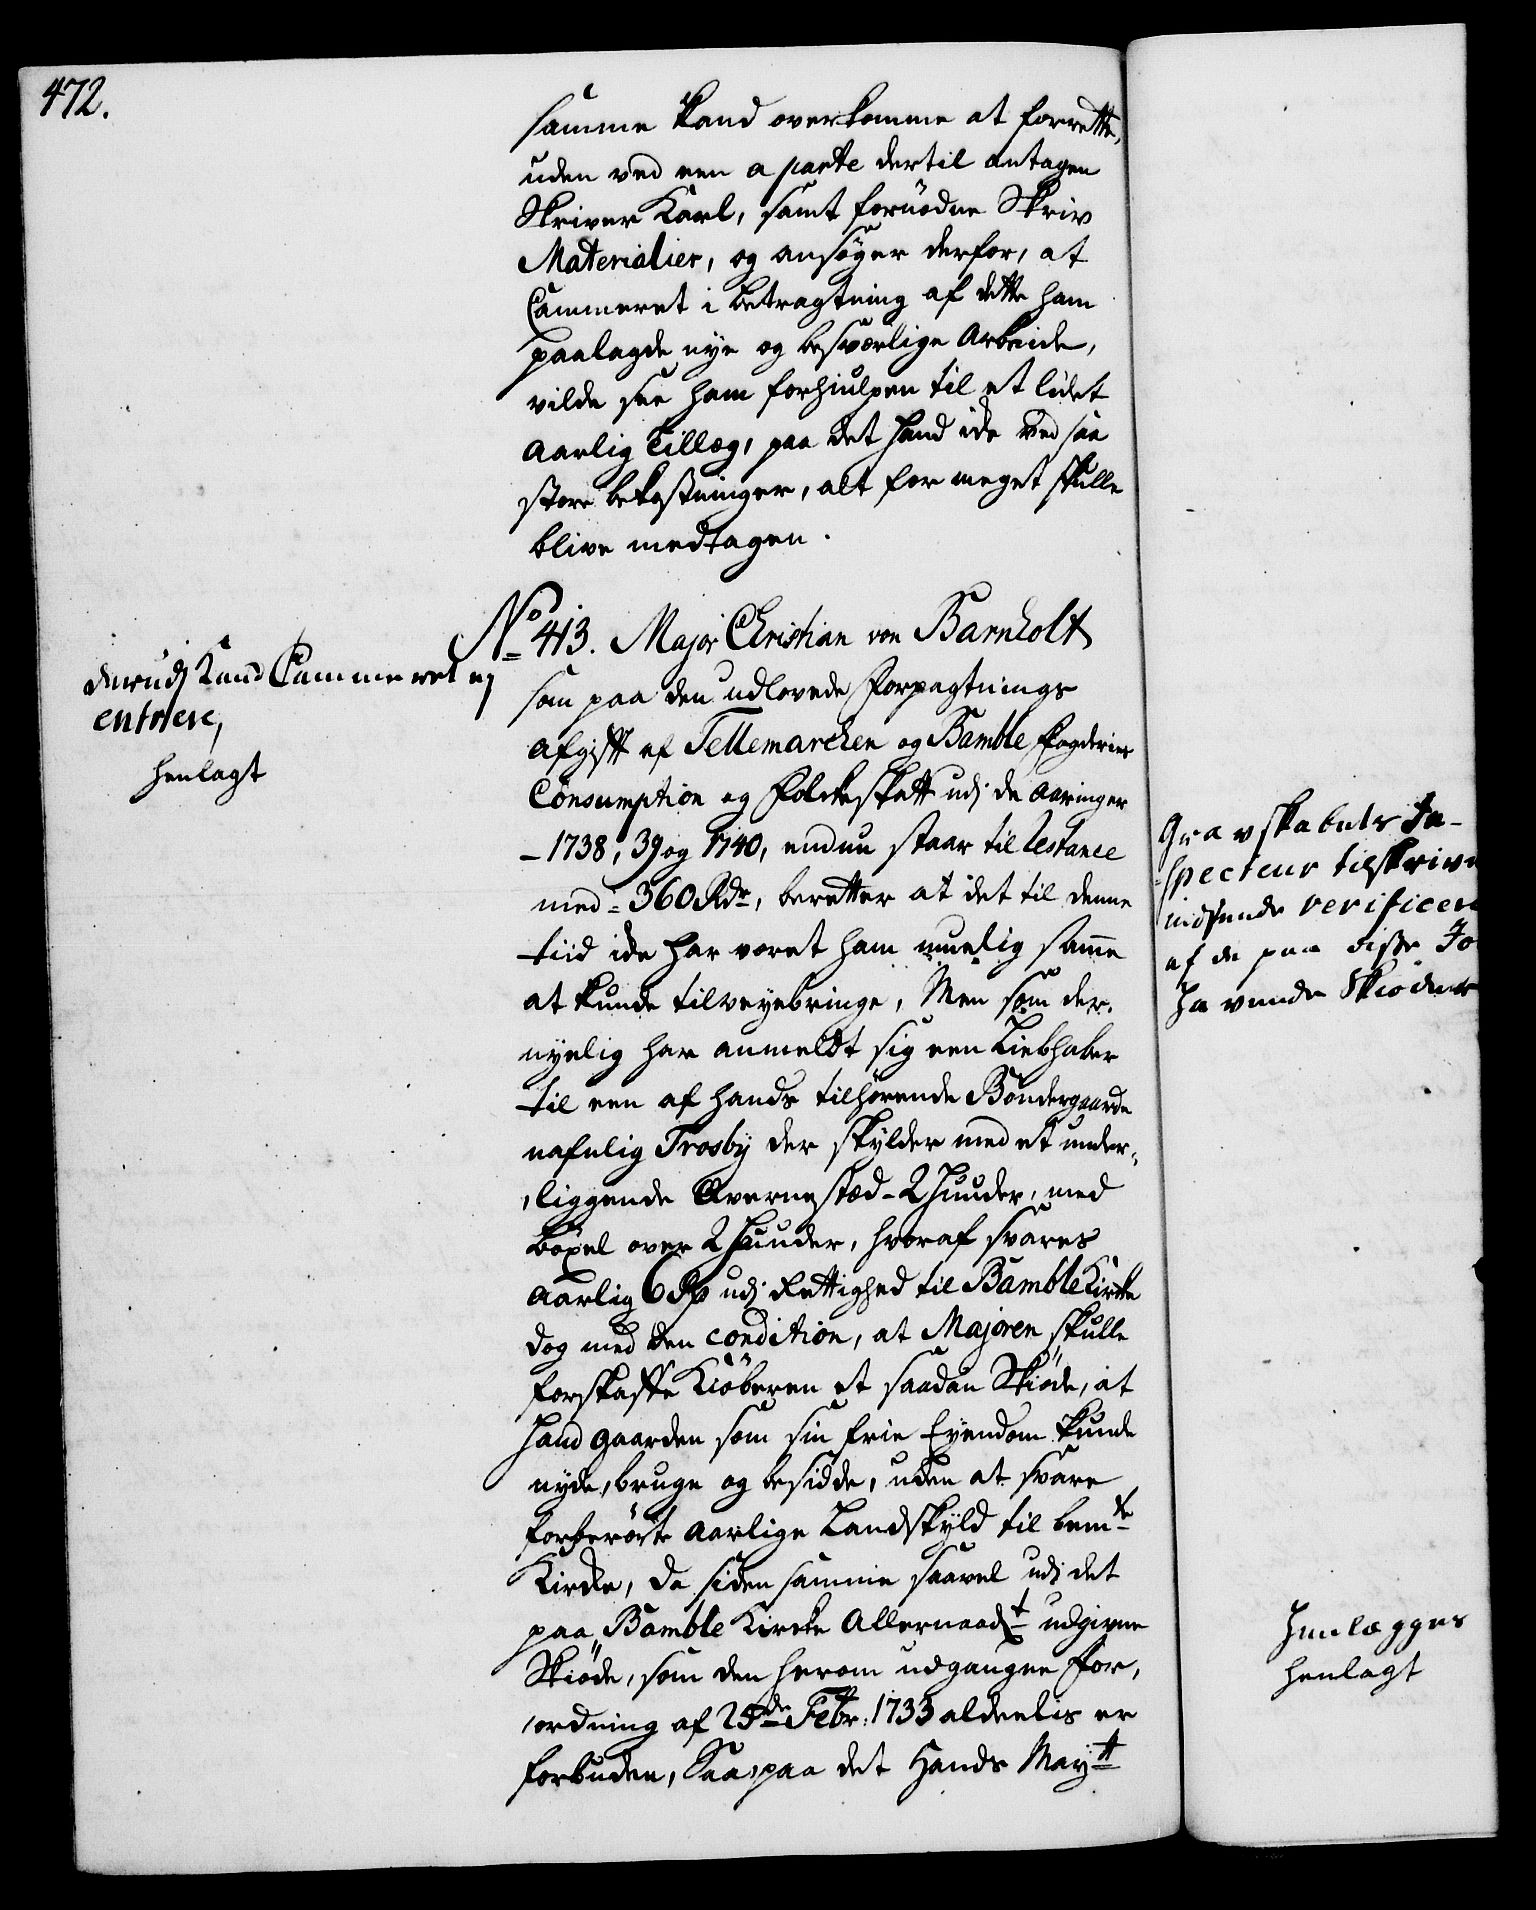 472.
samme kand overkomme at forrette,
uden ved een a parte dertil antagen
Skriver Karl, samt fornødne Skriv
Materialier, og ansøger derfor, at
Cammeret i betragtning af dette ham
paalagde nye og besværlige Arbeide,
vilde see ham forhiulpen til et lidet
aarlig Tillæg, paa det hand icke ved saa
store bekostninger, alt for meget skulle
blive medtagen.
No 413. Major Christian von Barnholt
som paa den udlovede Forpagtnings
Afgift af Tellemarchen og Bamble Fogderies
Consumption og Folckeskatt udj de Aaringer
1738, 39 og 1740, endnu staar til Restance
med = 360 Rdr, beretter at det til denne
tiid icke har været ham muelig samme
at kunde tilveyebringe, Men som der
nyelig har anmeldt sig een Liebhaber
til een af hands tilhørende Bøndergaarde
nafnlig Trosby der skylder med et under-
liggende Qvernestæd - 2 Huuder, med
bøxel over 2 Huuder, hvoraf svares
aarlig 6 udj Rettighed til Bamble Kircke
dog med den condition, at Majoren skulle
forskaffe Kiøberen et saadan Skiøde, at
Hand Gaarden som sin frie Eyendom kunde
nyde, bruge og besidde, uden at svare
forberørte aarlige Landskyld til bemte
Kircke, da siden samme saavel udj det
paa Bamble Kircke Allernaadt udgivne
Skiøde, som den herom udgangne For-
ordning af 25de Febr: 1733 aldeelis er
forbuden, Saa paa det Hands Maytt
derudj Kand Cammeret ej
entrere,
henlagt
Gravskabets In-
specteur tilskrive
indsende verificere
af de paa disse Jo
Havende Skiøder
Henlægges
henlagt